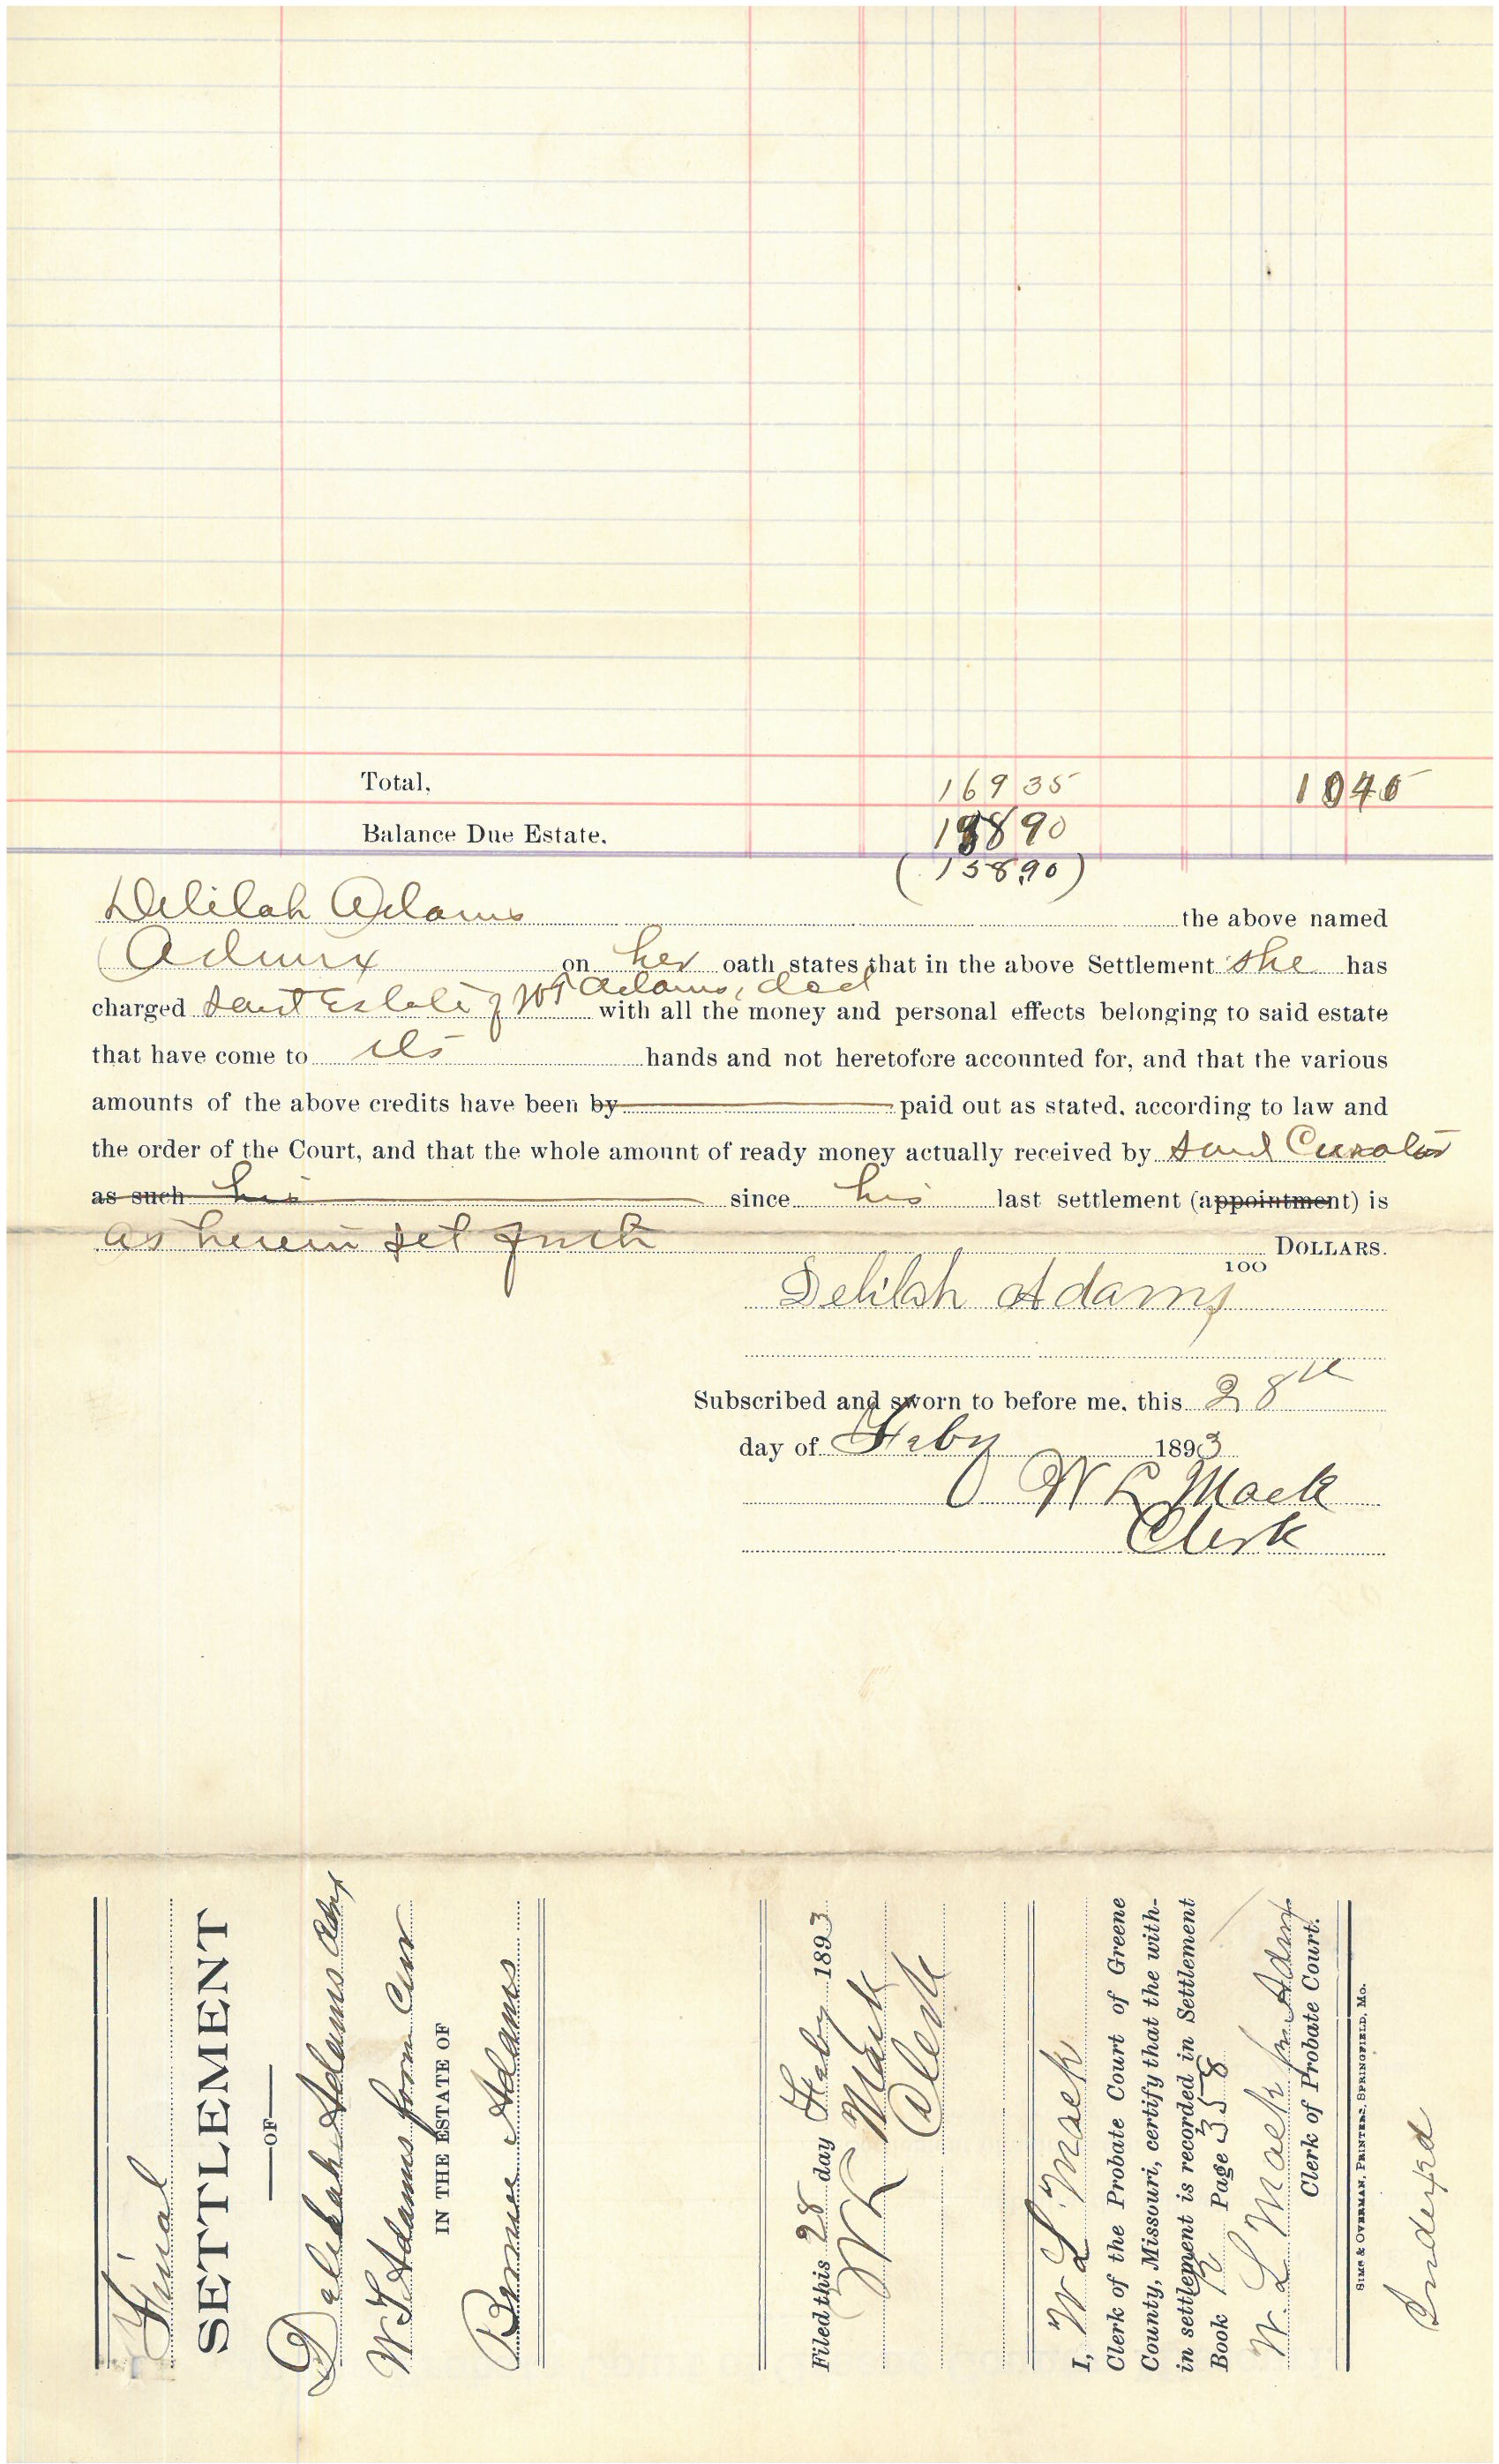 Total, 169 35 1045
Balance Due Estate. 15890
(158.90)
Delilah Adams the above named
Admrx on her oath states that in the above Settlement she has
charged said Estate of WT Adams, decd with all the money and personal effects belonging to said estate
that have come to its hands and not heretofore accounted for, and that the various
amounts of the above credits have been by paid out as stated, according to law and
the order of the Court, and that the whole amount of ready money actually received by said Curator
as such his since his last settlement (appointment) is
as herein set forth DOLLARS.
100
Delilah Adams
Subscribed and sworn to before me, this 28th
day of Feby 1893
W L Mack
Clerk
Final
SETTLEMENT
OF
Delilah Adams Admx
W T Adams form Cur
IN THE ESTATE OF
Adams
Filed this 28 day Feby 1893
W L Mack
Clerk
I, W L Mack
Clerk of the Probate Court of Greene
County, Missouri, certify that the with-
in settlement is recorded in Settlement
Book R Page 358
W. L Mack
Clerk of Probate Court.
SIMS & OVERMAN, PRINTERS, SPRINGFIELD, MO.
Indexed